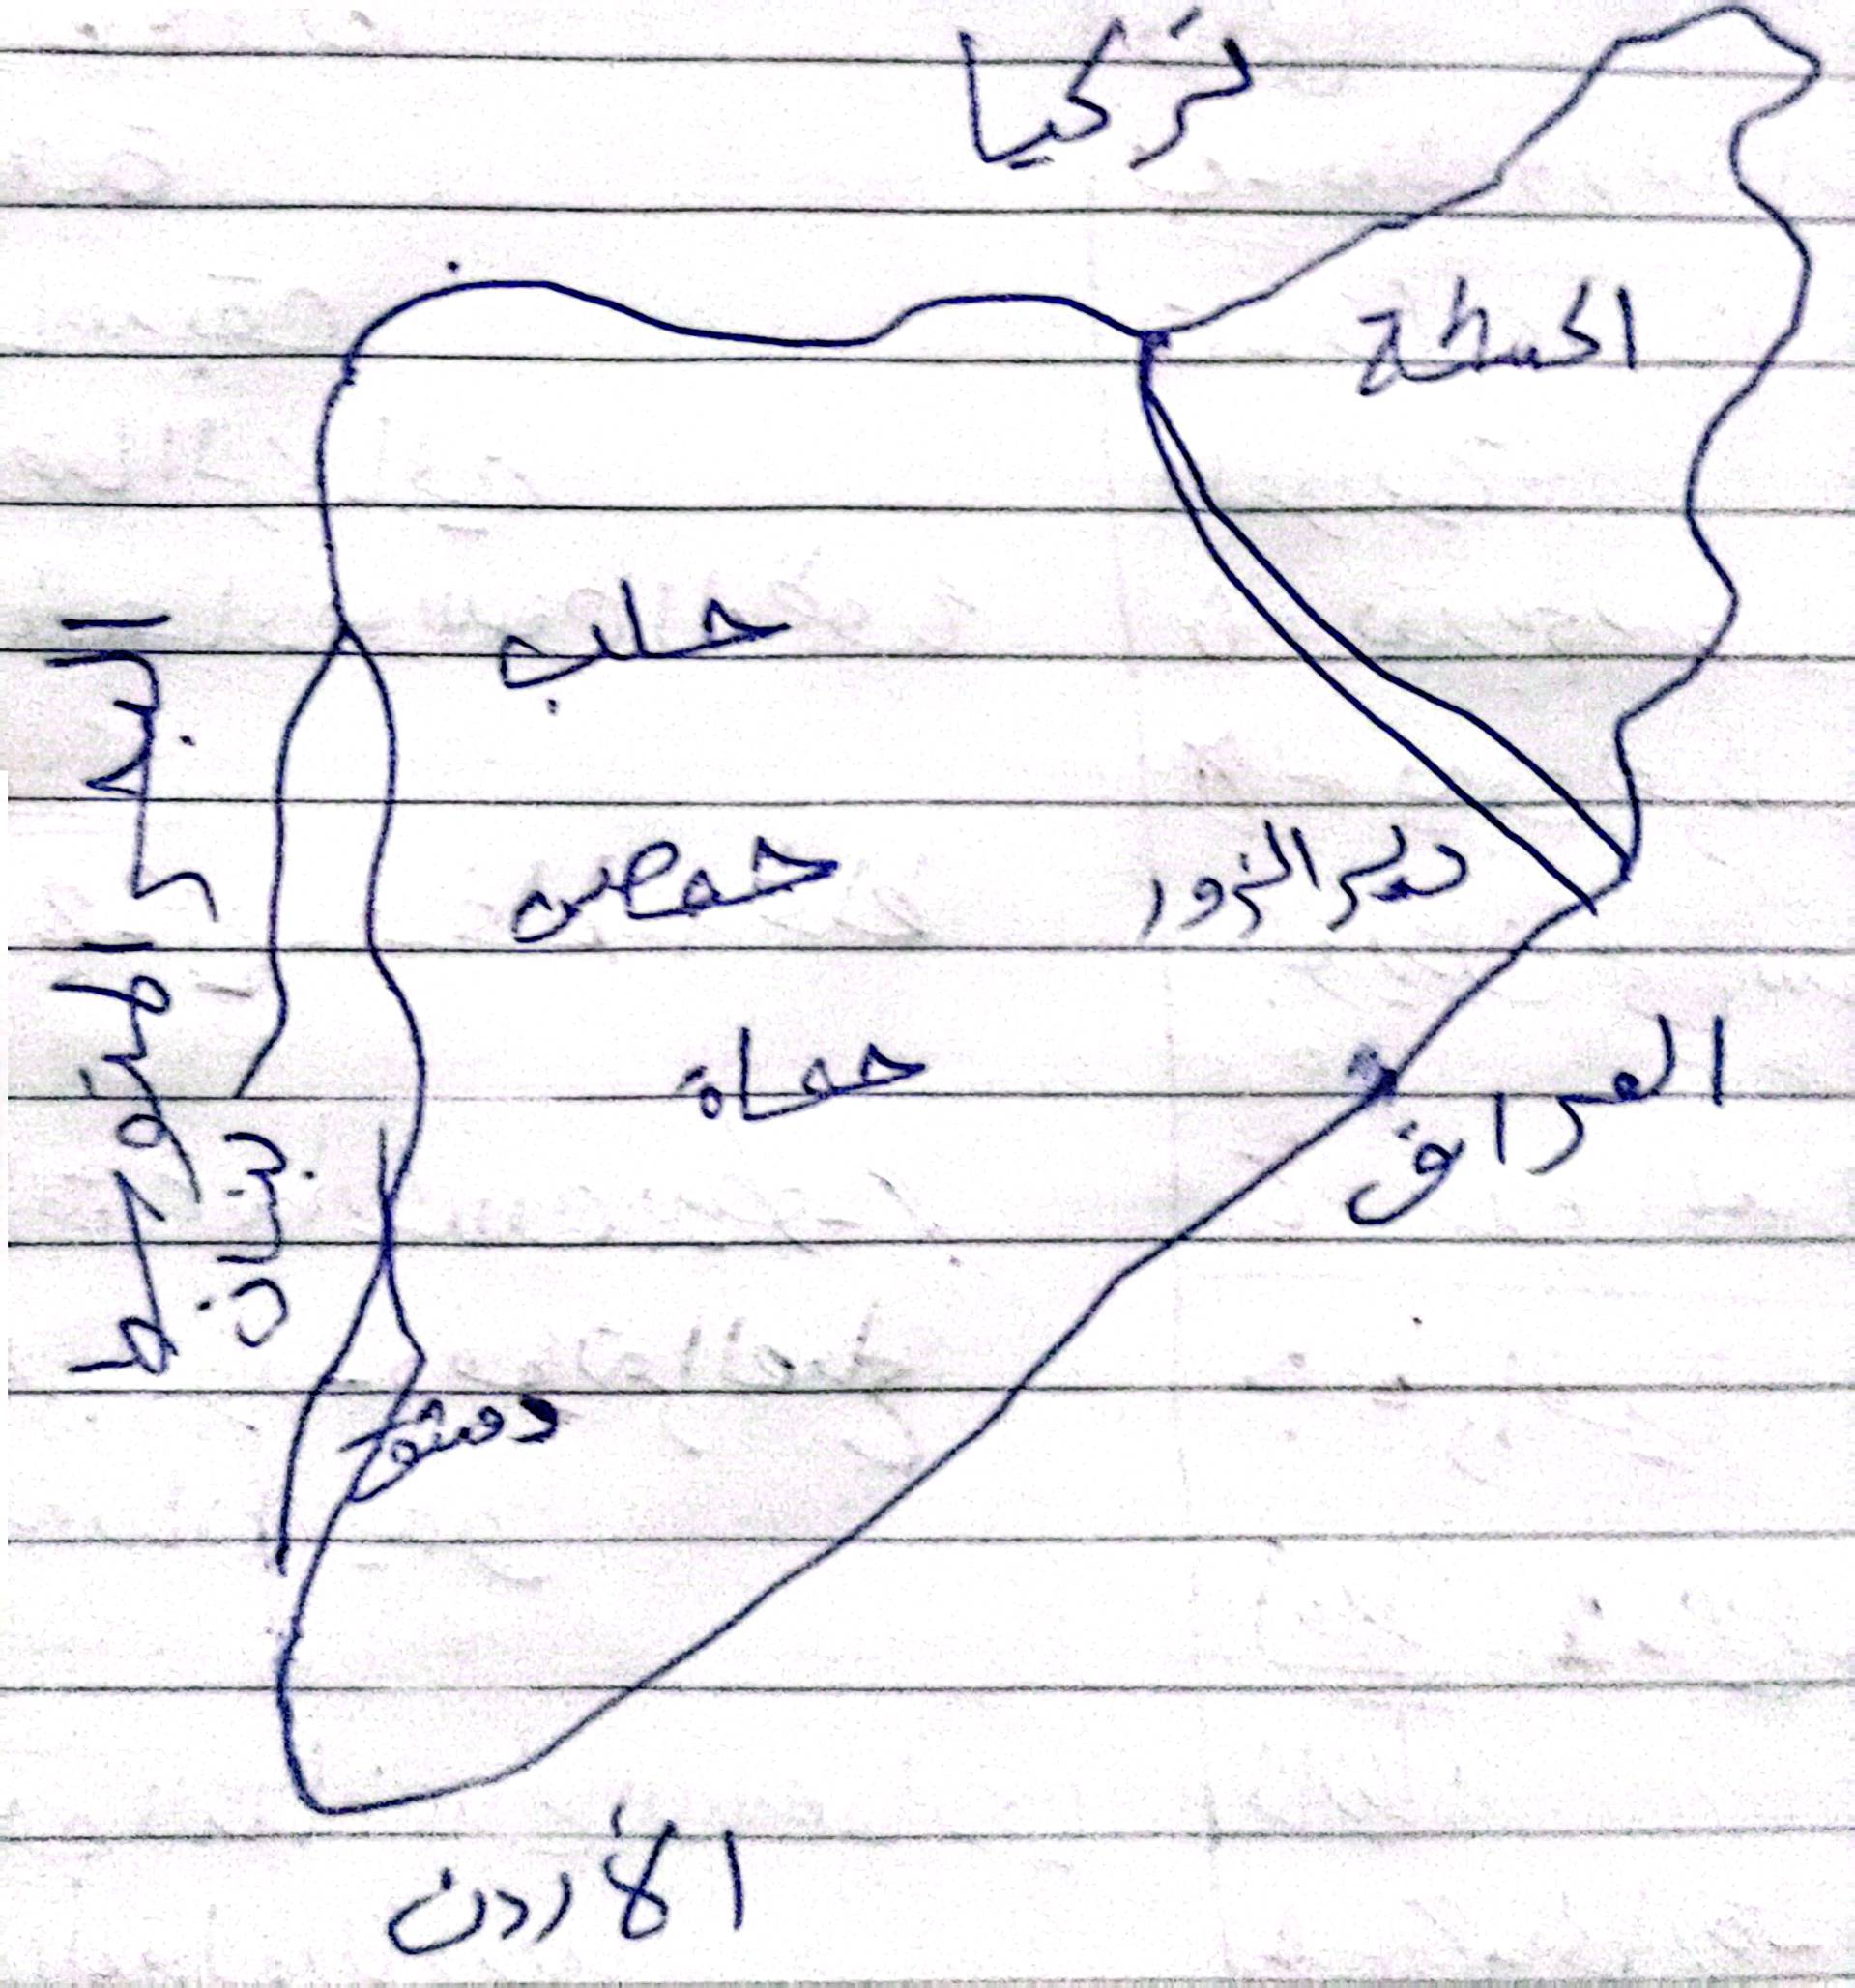 تركيا
حلب
حمص
دير الزور
حماة
العراق
البحر المتوسط
لبنان
دمشق
الأردن